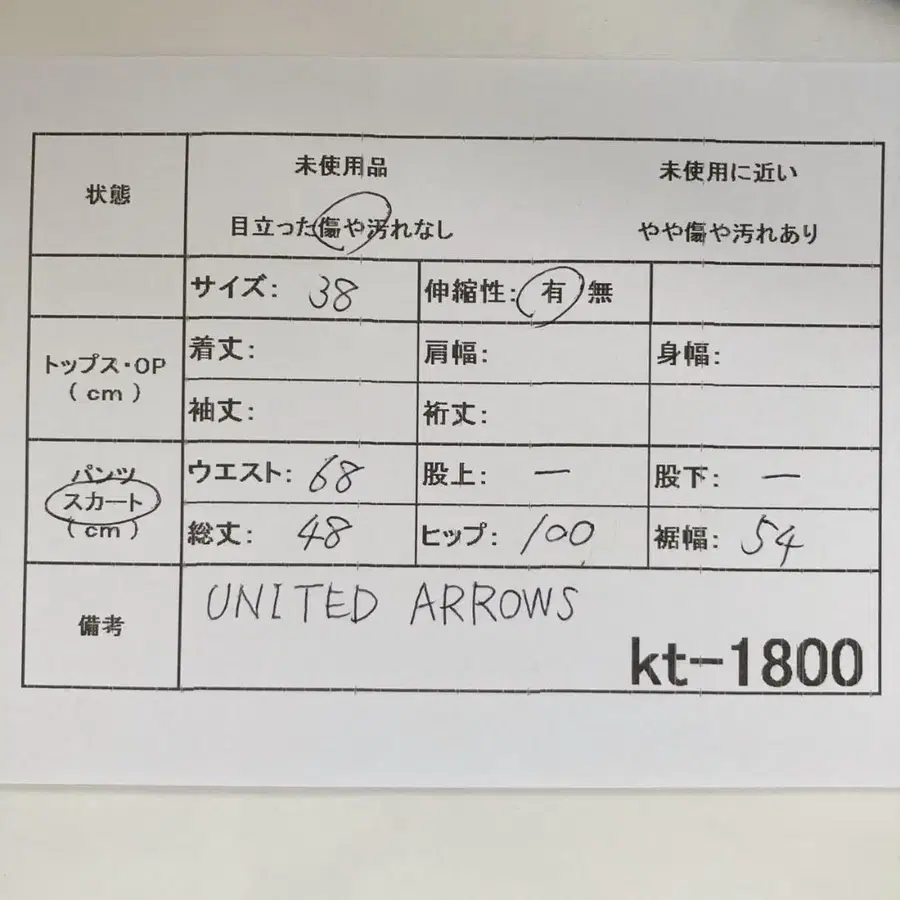 状態
未使用品 未使用に近い
目立った傷や汚れなし やや傷や汚れあり
サイズ: 38 伸縮性: 有 無
トップス・OP
(cm)
着丈: 肩幅: 身幅:
袖丈: 裄丈:
パンツ
スカート
(cm)
ウエスト: 68 股上: ー 股下: ー
総丈: 48 ヒップ: 100 裾幅: 54
備考
UNITED ARROWS
kt-1800